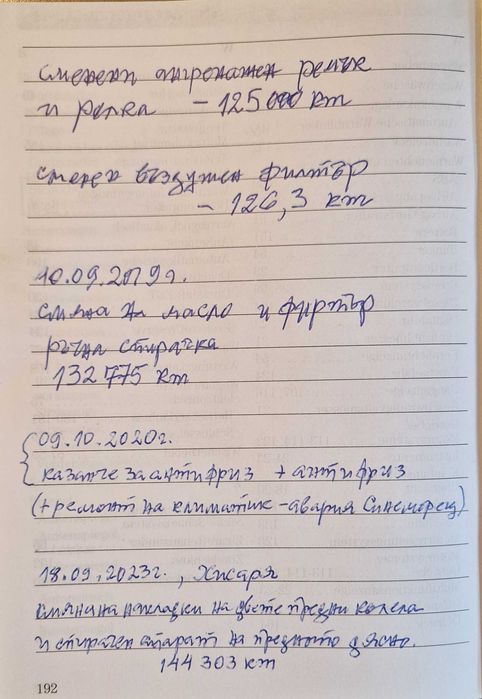 сменени ангренажен ремък
и релка - 125 000 km
сменен въздушен филтър
- 126,3 km
10.09.2019г.
смяна на масло и филтър
ръчна спирачка
132 775 km
09.10.2020г.
казанче за антифриз + антифриз
(+ремонт на климатик - авария Синеморец)
18.09.2023г., Хисаря
смяна на накладки на двете предни колела
и спирачен апарат на предното дясно.
144 303 km
192